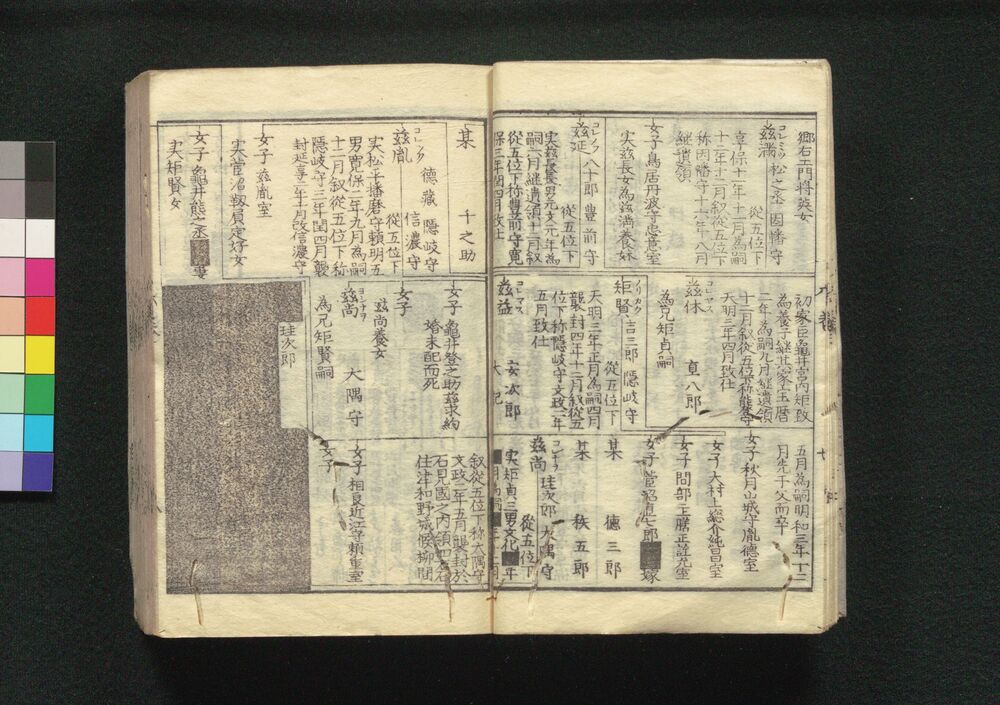 郷右エ門将英女
コレミツ
茲満 松之丞 因幡守
従五位下
享保十一年十二月為嗣
十二年十二月叙従五位下
称因幡守十六年八月
継遺領
女子鳥居丹波守忠意室
実茲長女為茲満養妹
コレノブ
茲延 八十郎 豊前守
従五位下
実茲長長男元文元年為
嗣六月継遺領十二月叙
従五位下称豊前守寛
保三年閏四月致仕
初家臣亀井宮内矩致
為養子継其家宝暦
二年為嗣九月継遺領
十二月叙従五位下称能登守
天明三年四月致仕
コレヤス
茲休 貞八郎
為兄矩貞嗣
ノリカタ
矩賢 吉三郎 隠岐守
従五位下
天明三年正月為嗣四月
襲封四年十二月叙従五
位下称隠岐守文政二年
五月致仕
コレマス
茲益 亥次郎
大記
五月為嗣明和三年十二
月先于父而卒
女子秋月山城守胤徳室
女子大村上総介純昌室
女子間部主膳正詮允室
女子菅沼直七郎 嫁
某 徳三郎
某 秩五郎
コレナヲ
茲尚 珪次郎 大隅守
従五位下
実矩貞三男文化 年
某 千之助
コレタネ
茲胤 徳蔵 隠岐守
信濃守
従五位下
実松平播磨守頼明五
男寛保二年九月為嗣
十二月叙従五位下称
隠岐守三年閏四月襲
封延享二年十月改信濃守
女子 茲胤室
実菅沼摂津守定好女
女子 亀井熊之丞 妻
実矩賢女
女子 亀井登之助茲求約
婚未配而死
女子
茲尚養女
コレナヲ
茲尚 大隅守
為兄矩賢嗣
珪次郎
叙従五位下称大隅守
文政二年五月襲封於
石見国之内領四万石
住津和野城候柳間
女子 相良近江守頼重室
女子